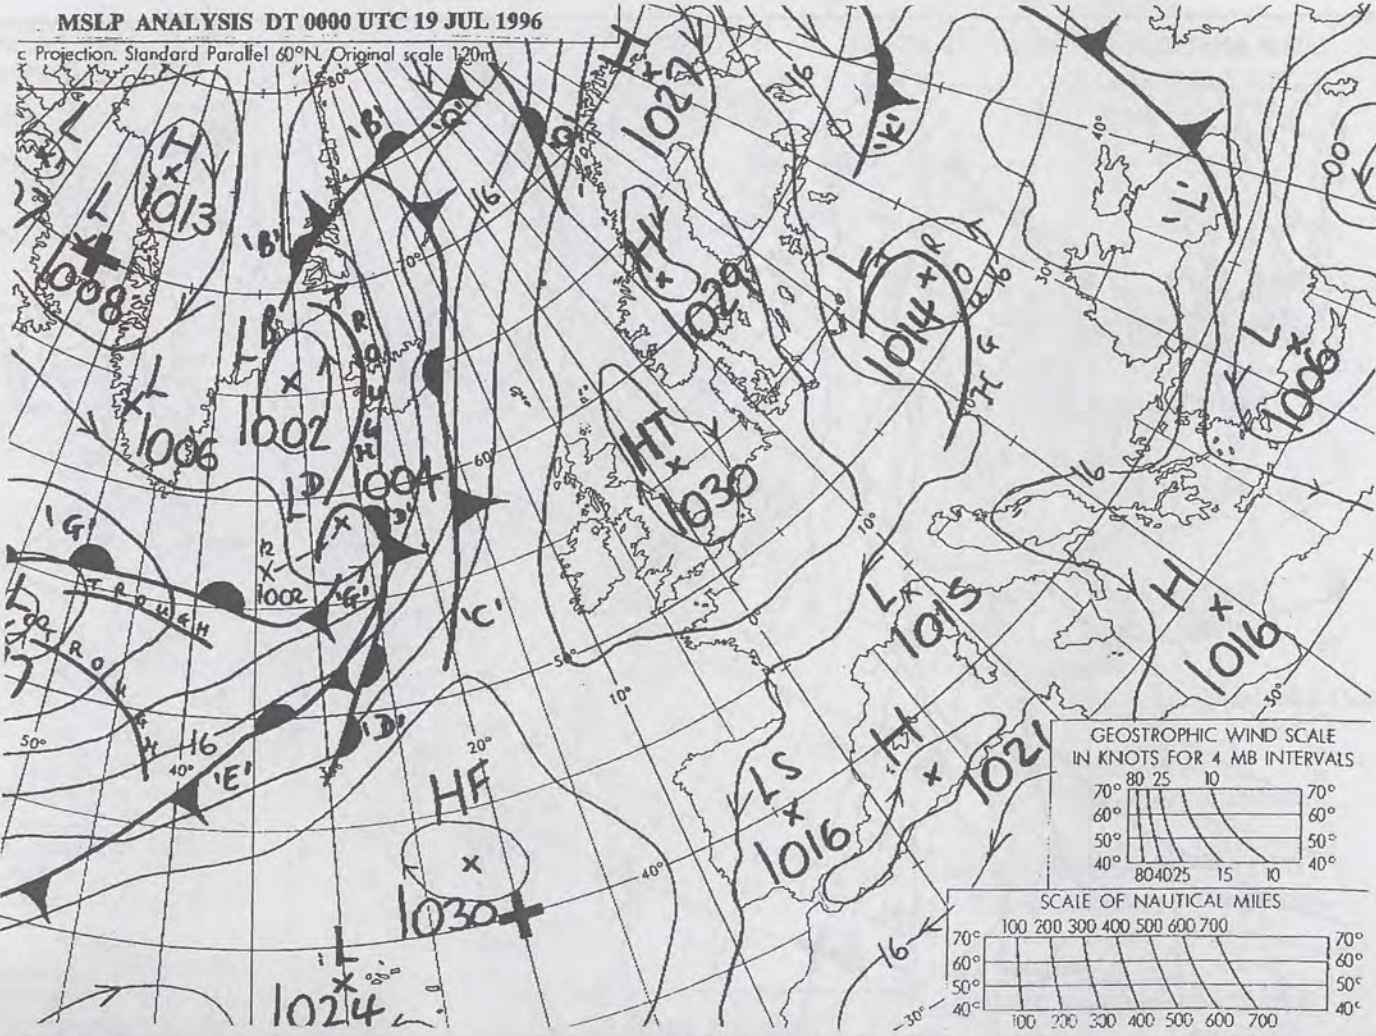 MSLP ANALYSIS DT 0000 UTC 19 JUL 1996
c Projection. Standard Parallel 60°N. Original scale 1:20m
L
H
1013
L
1008
'B'
'Q'
'Q'
'B'
16
0°
H
1027
16
'K'
40°
'L'
H
1029
L
1014
TROUGH
16
30°
L
1006
L
1006
LB
1002
TROUGH
LD
1004
60°
HT
1030
10°
16
'G'
TROUGH
12
1002
'G'
'D'
'C'
L
TROUGH
50°
16
40°
'E'
30°
'D'
20°
10°
50°
0°
L
1015
H
1016
30°
HF
1030
40°
L
1024
LS
1016
H
1021
16
30°
GEOSTROPHIC WIND SCALE
IN KNOTS FOR 4 MB INTERVALS
80 25 10
70° 70°
60° 60°
50° 50°
40° 40°
80 40 25 15 10
SCALE OF NAUTICAL MILES
100 200 300 400 500 600 700
70° 70°
60° 60°
50° 50°
40° 40°
100 200 300 400 500 600 700